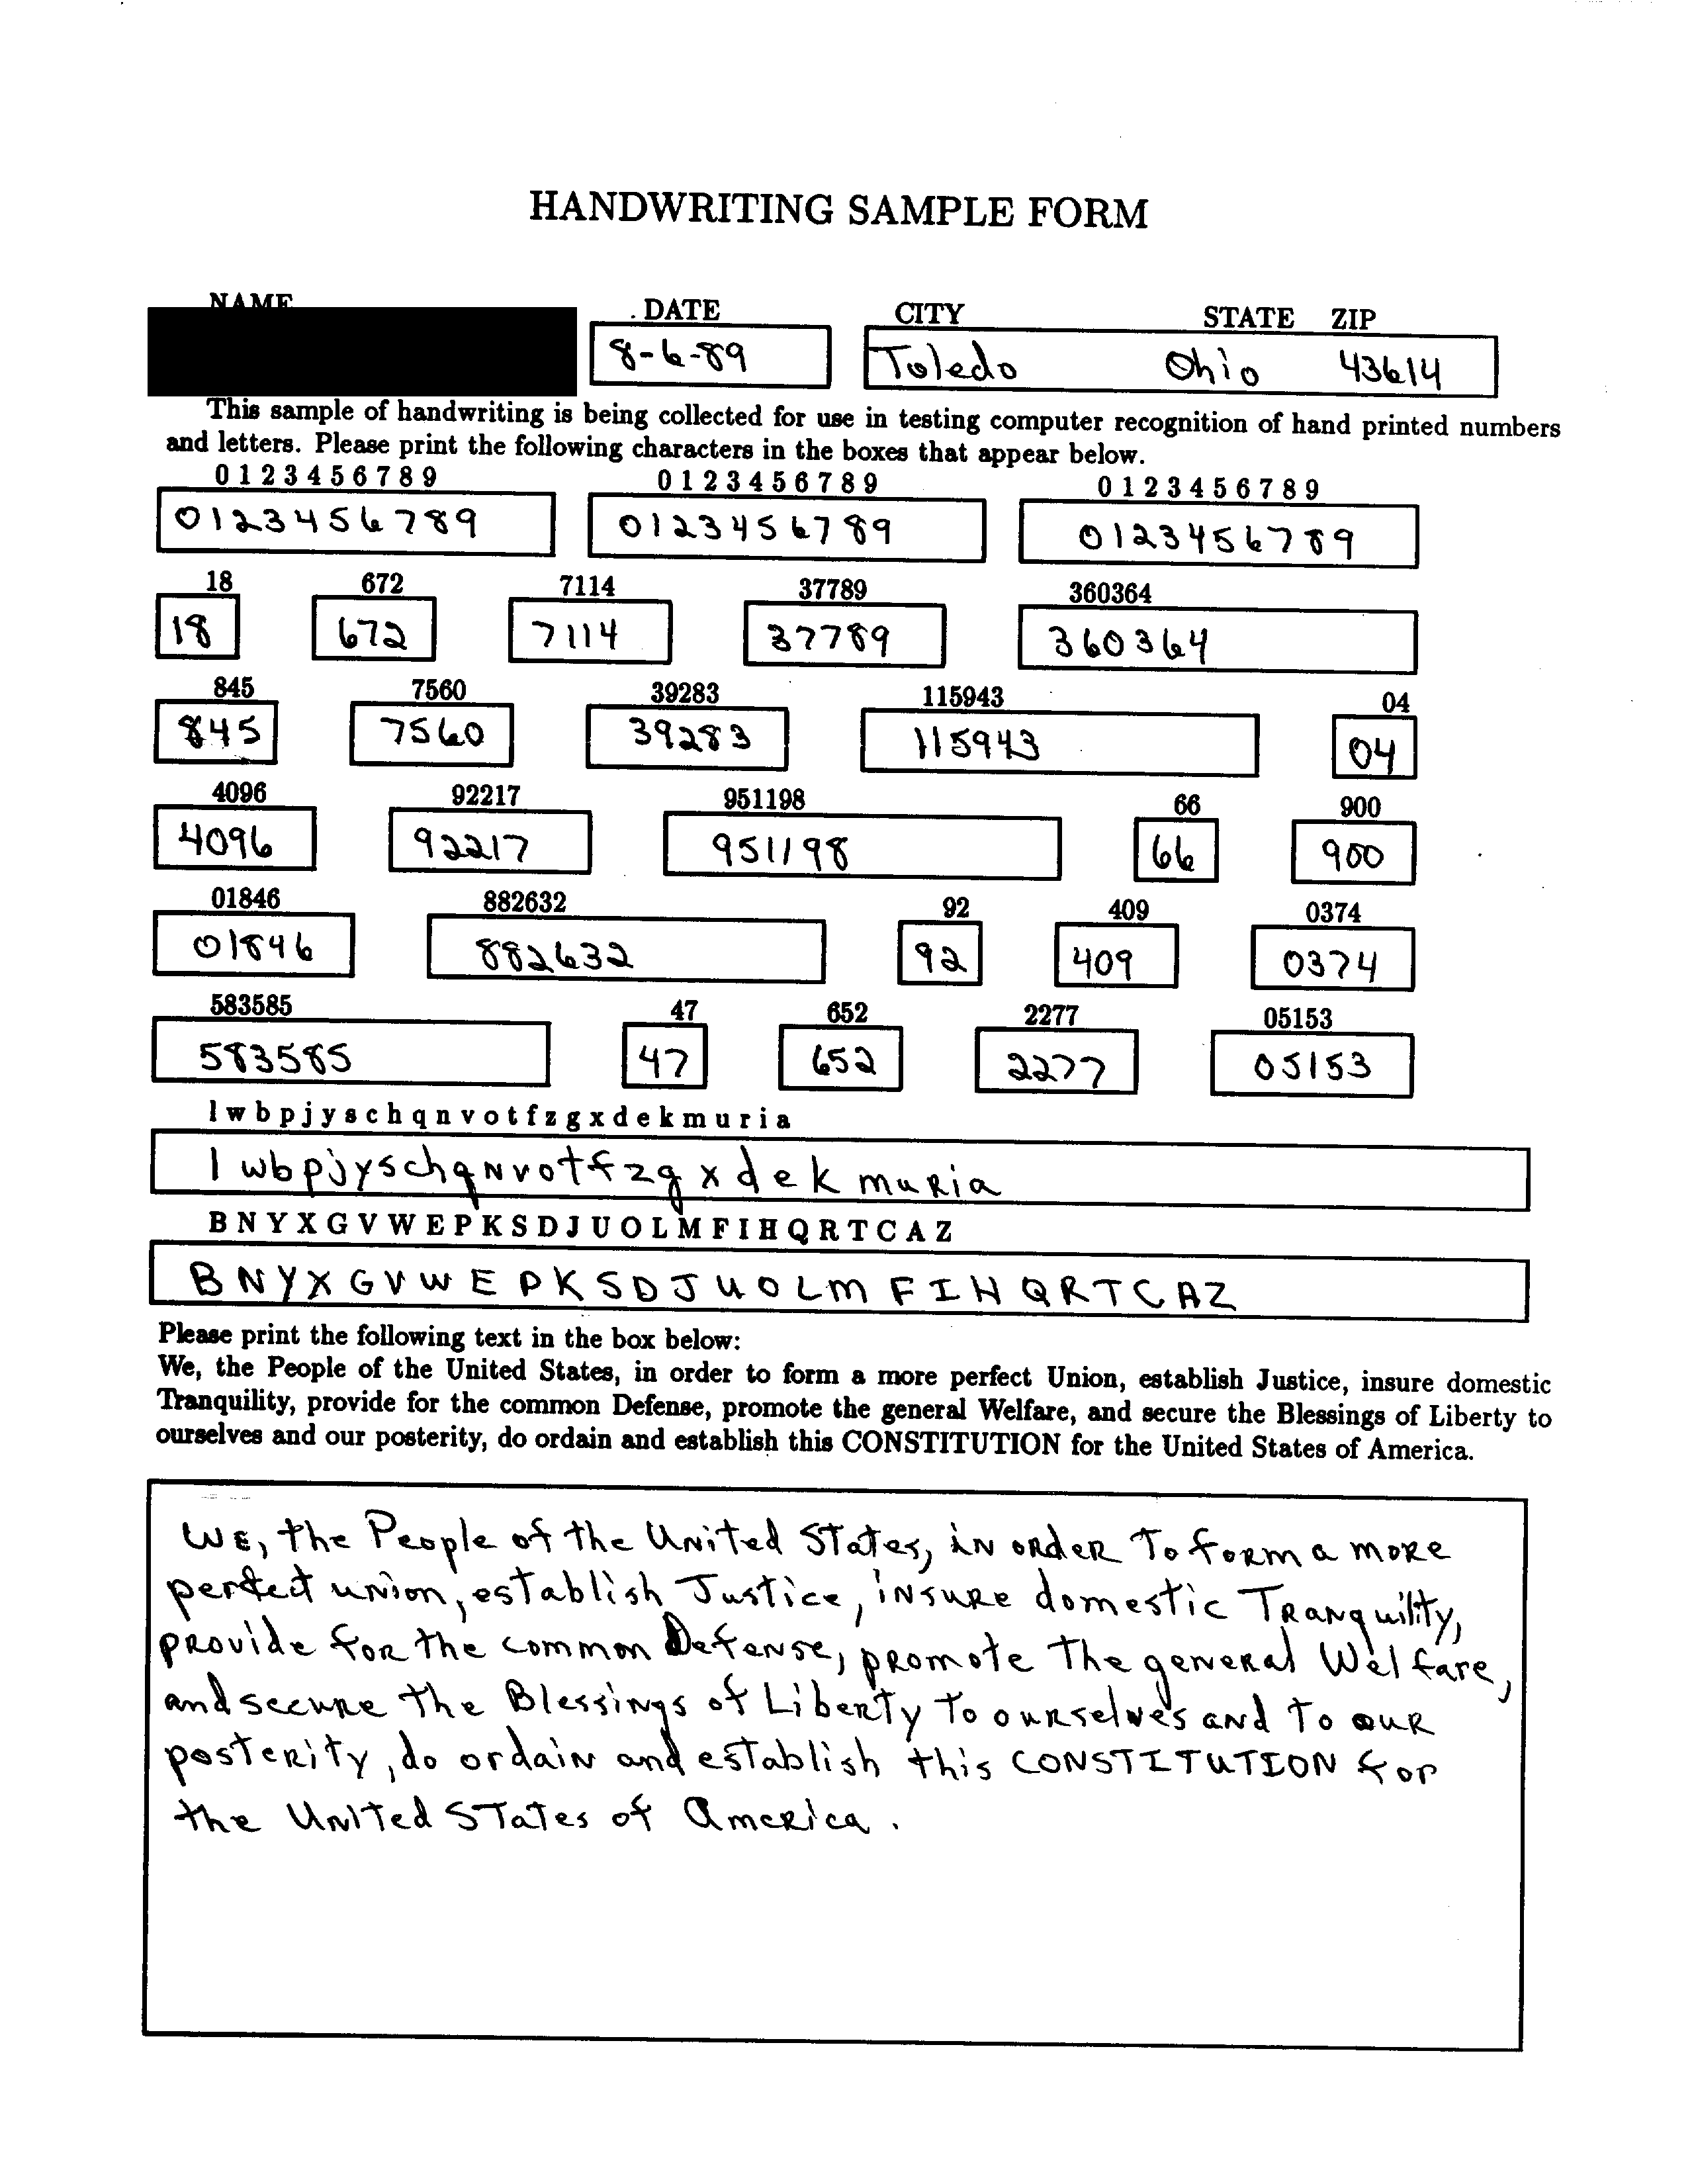 HANDWRITING SAMPLE FORM
NAME DATE CITY STATE ZIP
8-6-89 Toledo Ohio 43614
This sample of handwriting is being collected for use in testing computer recognition of hand printed numbers
and letters. Please print the following characters in the boxes that appear below.
0 1 2 3 4 5 6 7 8 9 0 1 2 3 4 5 6 7 8 9 0 1 2 3 4 5 6 7 8 9
0123456789 0123456789 0123456789
18 672 7114 37789 360364
18 672 7114 37789 360364
845 7560 39283 115943 04
845 7560 39283 115943 04
4096 92217 951198 66 900
4096 92217 951198 66 900
01846 882632 92 409 0374
01846 882632 92 409 0374
583585 47 652 2277 05153
583585 47 652 2277 05153
l w b p j y s c h q n v o t f z g x d e k m u r i a
l w b p j y s c h q N v o t f z g x d e k m u R i a
B N Y X G V W E P K S D J U O L M F I H Q R T C A Z
B N Y X G V W E P K S D J U O L M F I H Q R T C A Z
Please print the following text in the box below:
We, the People of the United States, in order to form a more perfect Union, establish Justice, insure domestic
Tranquility, provide for the common Defense, promote the general Welfare, and secure the Blessings of Liberty to
ourselves and our posterity, do ordain and establish this CONSTITUTION for the United States of America.
WE, the People of the United States, in order To form a more
perfect union, establish Justice, insure domestic Tranquility,
provide for the common Defense, promote the general Welfare,
and secure the Blessings of Liberty To ourselves and To our
posterity, do ordain and establish this CONSTITUTION for
the United States of America.